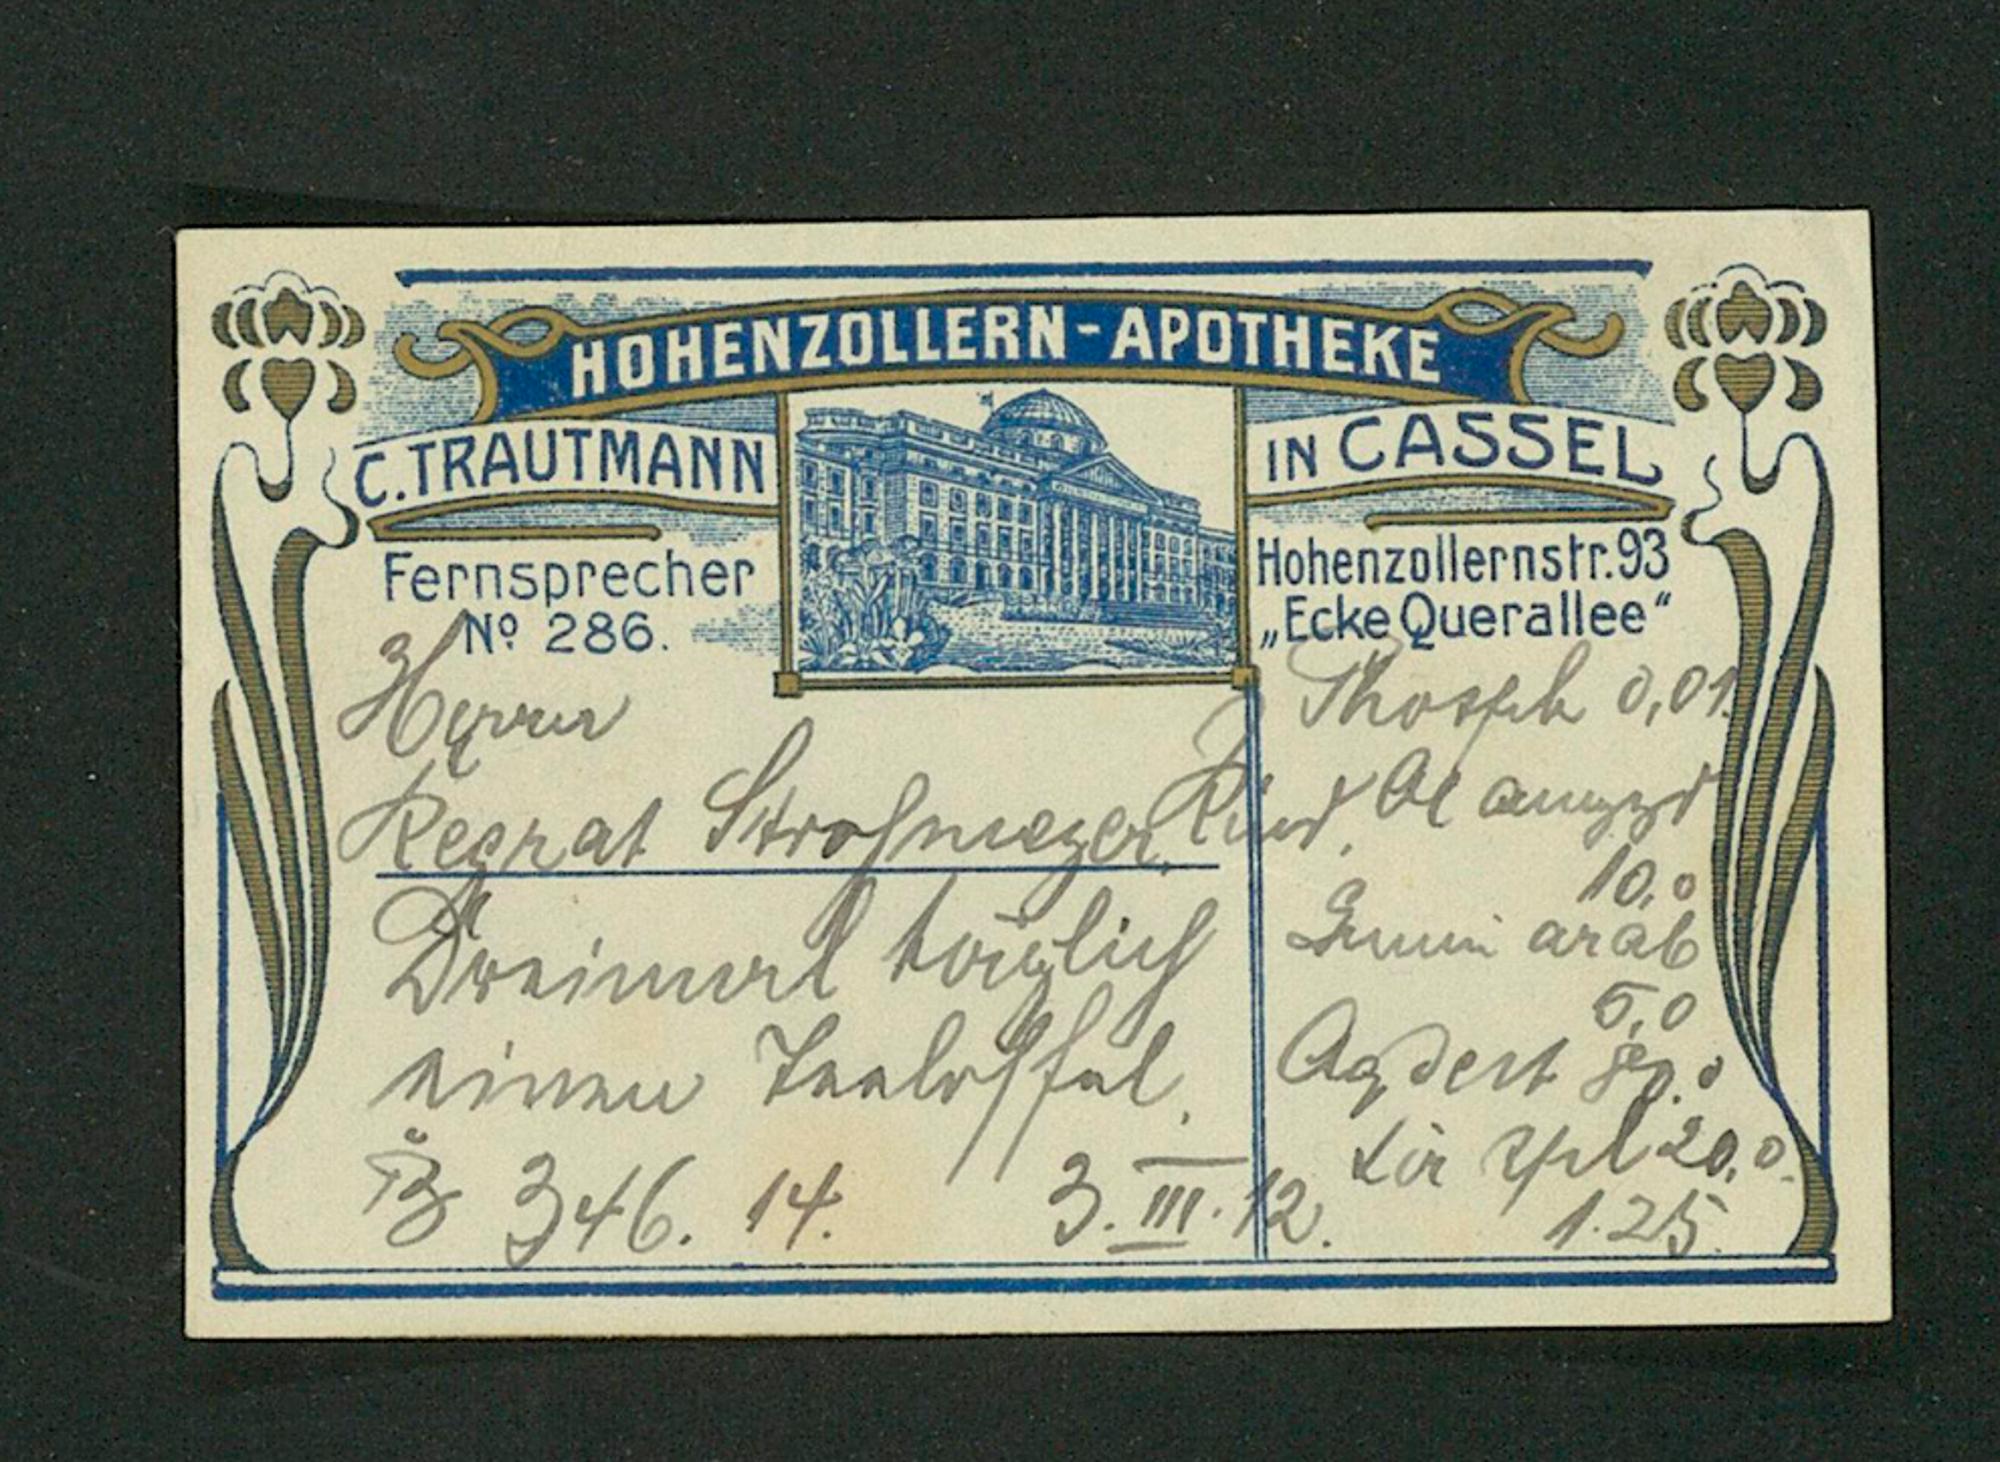 HOHENZOLLERN-APOTHEKE
C. TRAUTMANN
IN CASSEL
Fernsprecher
No 286.
Hohenzollernstr. 93
„Ecke Querallee“
Herrn
Regrat Strohmeyer, Kind.
Dreimal täglich
einen Teelöffel.
346. 14. 3. III. 12.
Phosph 0,01.
Ol amygd
10,0
Gummi arab
5,0
Aq dest
Sir 20,0.
1.25.